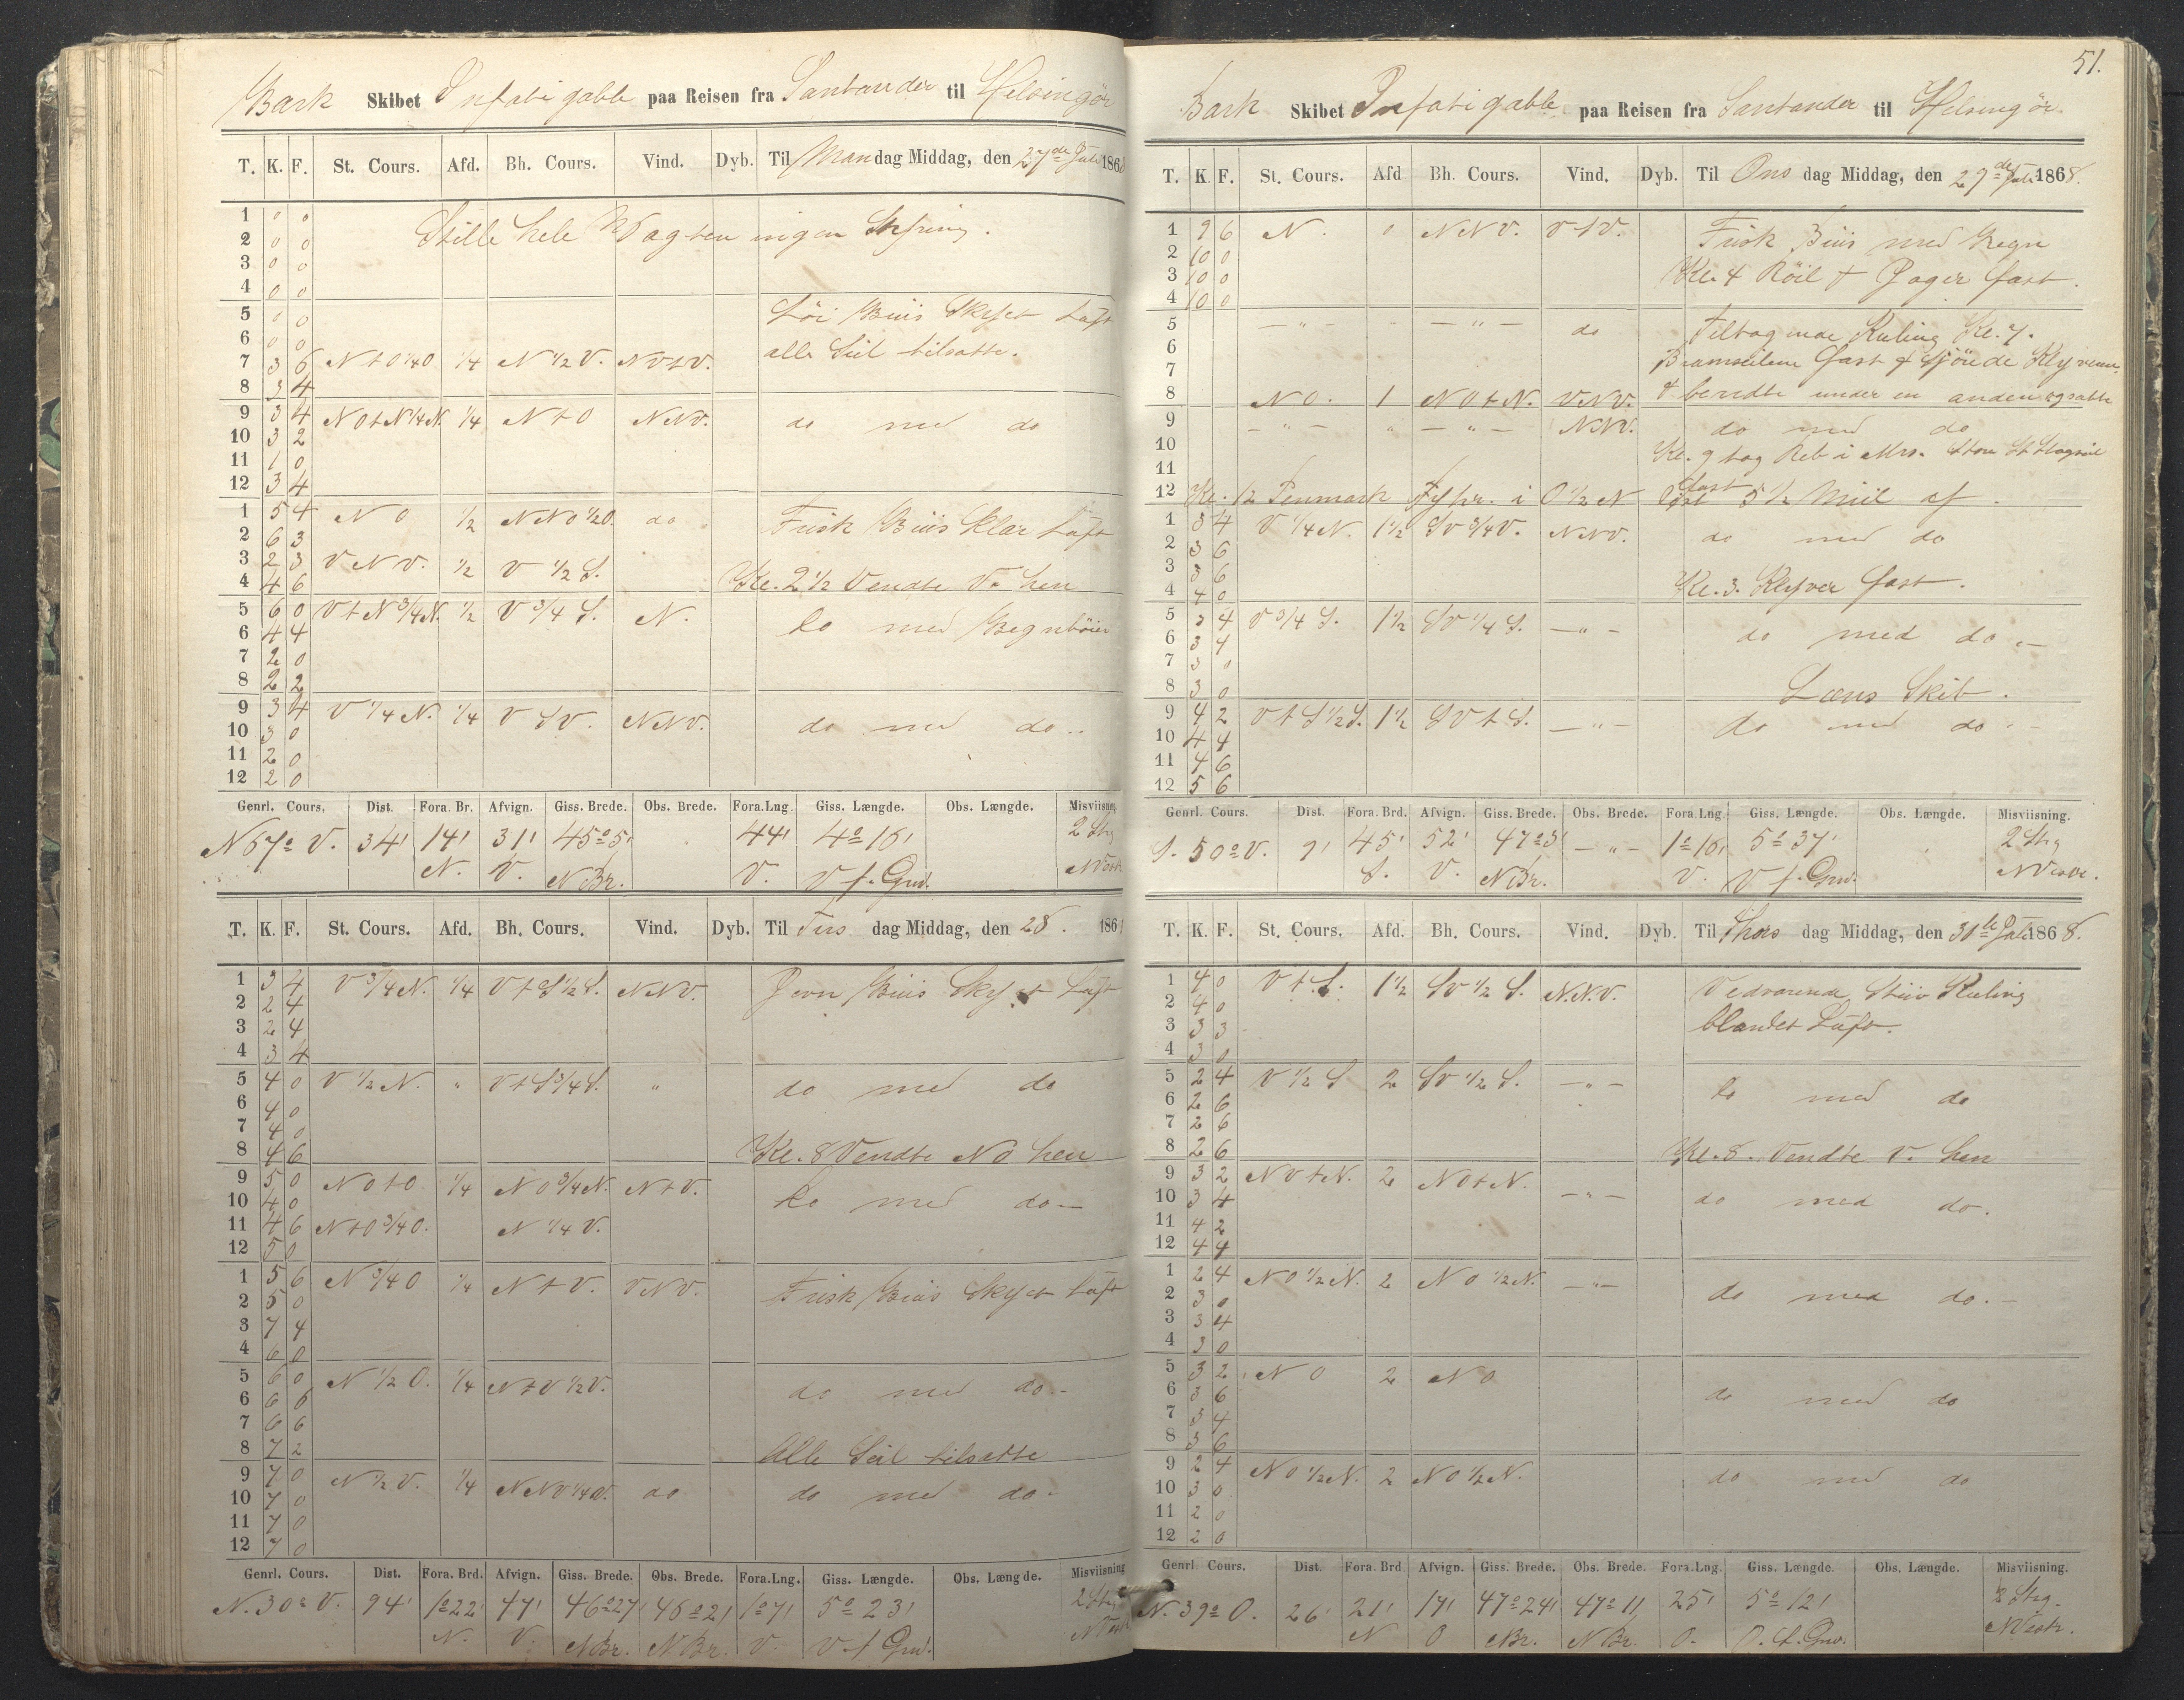 Bark Skibet Infatigable paa Reisen fra Santander til Helsingör
T. K. F. St. Cours. Afd. Bh. Cours. Vind. Dyb. Til Mandag Middag, den 27de Juli 1868
1 0 0 Stille hele Vagten ingen Styring.
2 0 0
3 0 0
4 0 0
5 0 0 Löi Briis Skyet Luft
6 0 0
7 3 6 N t O 1/4 O 1/4 N 1/2 V. NV t V. alle Seil tilsatte.
8 3 4
9 3 4 NO t N 1/4 N. 1/4 N t O NNV. do med do
10 3 2
11 1 0
12 3 4
1 5 4 NO 1/2 NNO 1/2 O. do Frisk Briis Klar Luft
2 6 3
3 2 3 VNV. 1/2 V 1/2 S.
4 4 6 Kl. 2 1/2 Vendte V. hen
5 6 0 V t N 3/4 N. 1/2 V 3/4 S. N. do med Regnböier
6 4 4
7 2 0
8 2 2
9 3 4 V 1/4 N. 1/4 V SV. NNV. do med do..
10 3 0
11 2 0
12 2 0
Genrl. Cours. Dist. Fora. Br. Afvign. Giss. Brede. Obs. Brede. Fora.Lng. Giss. Længde. Obs. Længde. Misviisning
N 67° V. 34' 14' 31' 45° 5' 44' 4° 16' 2 Stg
N. V. N Br. V. V f. Grw. NVest
T. K. F. St. Cours. Afd. Bh. Cours. Vind. Dyb. Til Tirsdag Middag, den 28. 186
1 3 4 V 3/4 N. 1/4 V t S 1/2 S. NNV. Jevn Briis Skyet Luft
2 2 4
3 2 4
4 3 4
5 4 0 V 1/2 N. " V t S 3/4 S. " do med do
6 4 0
7 4 0
8 4 6 Kl. 8 Vendte NO hen
9 5 0 NO t O 1/4 NO 3/4 N. N t V. do med do —
10 4 0
11 4 6 N t O 3/4 O. N 1/4 V.
12 5 0
1 5 6 N 3/4 O 1/4 N t V. VNV. Frisk Briis Skyet Luft
2 5 0
3 7 4
4 6 0
5 6 0 N 1/2 O. 1/4 N t V 1/2 V. do med do.-
6 6 6
7 6 6
8 7 2 Alle Seil tilsatte
9 7 0 N 1/2 V. 1/4 NNV 1/4 V. do do med do.
10 7 0
11 7 0
12 7 0
Genrl. Cours. Dist. Fora. Brd. Afvign. Giss. Brede. Obs. Brede. Fora.Lng. Giss. Længde. Obs. Længde. Misviisning
N. 30° V. 94' 1° 22' 47' 46° 27' 46° 21' 1° 7' 5° 23' 2 Stg
N. V. N Br. N Br. V. V f Grw. NVest
51.
Bark Skibet Infatigable paa Reisen fra Santander til Helsingör
T. K. F. St. Cours. Afd Bh. Cours. Vind. Dyb. Til Onsdag Middag, den 29de Juli 1868.
1 9 6 N. 0 NNV. V t V. Frisk Briis med Regn
2 10 0
3 10 0 Kl. 4 Röil & Jager fast.
4 10 0
5 — " — " — " — do Tiltagende Kuling Kl. 7.
6
7 Bramseilene fast & fjöiede Klyveren
8 NO. 1 NO t N. VNV. & beredte under en anden ogsatte
9 — " — " — " — NNV. do med do
10 Kl. 9 tog Reb i Mrs. Store St Stagseil
11 fast
12 Kl. 12 Penmark Fyhr. i O 1/2 N Cost 5 1/2 Miil af.
1 3 4 V 1/4 N. 1 1/2 SV 3/4 V. NNV. do med do
2 3 6
3 3 6
4 4 0 Kl. 3. Klyver fast.
5 3 4 V 3/4 S. 1 1/2 SV 1/4 S. — " — do med do.—
6 3 4
7 3 0
8 3 0 Læns Skib.
9 4 2 V t S 1/2 S. 1 1/2 SV t S. — " — do med do.-
10 4 4
11 4 6
12 5 6
Genrl. Cours. Dist. Fora. Brd. Afvign. Giss. Brede. Obs. Brede. Fora.Lng Giss. Længde. Obs. Længde. Misviisning.
S. 50° V. 9' 45' 52' 47° 3' — " — 1° 16' 5° 37' 2 Stg
S. V. N Br. V. V f. Grw. NVestl.
T. K. F. St. Cours. Afd. Bh. Cours. Vind. Dyb. Til Thorsdag Middag, den 30de Juli 1868.
1 4 0 V t S. 1 1/2 SV 1/2 S. N.N.V. Vedvarende Stiiv Kuling
2 4 0
3 3 3 blandet Luft.
4 3 0
5 2 4 V 1/2 S 2 SV 1/2 S. — " — do med do
6 2 6
7 2 6
8 2 6 Kl. 8. Vendte V. hen
9 3 2 NO t N. 2 NO t N. — " — do med do.
10 3 4
11 4 2
12 4 4
1 2 4 NO 1/2 N. 2 NO 1/2 N. — " — do med do.—
2 3 0
3 3 4
4 3 0
5 3 2 NO 2 NO do med do
6 3 6
7 3 4
8 3 6
9 2 4 NO 1/2 N. 2 NO 1/2 N. do med do
10 3 0
11 2 0
12 2 0
Genrl. Cours. Dist. Fora. Brd Afvign. Giss. Brede. Obs. Brede. Fora.Lng. Giss. Længde. Obs. Længde. Misviisning.
N. 39° O. 26' 21' 17' 47° 24' 47° 11' 25' 5° 12' 2 Stg.
N O N Br. N Br. O. V. f. Grw. NVestl.